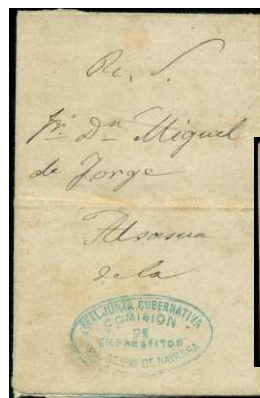 Sr. Dn. Miguel
de Jorge
Alsasua
de la
JUNTA GUBERNATIVA
COMISION
DE
EMPRESTITOS
REINO DE NAVARRA